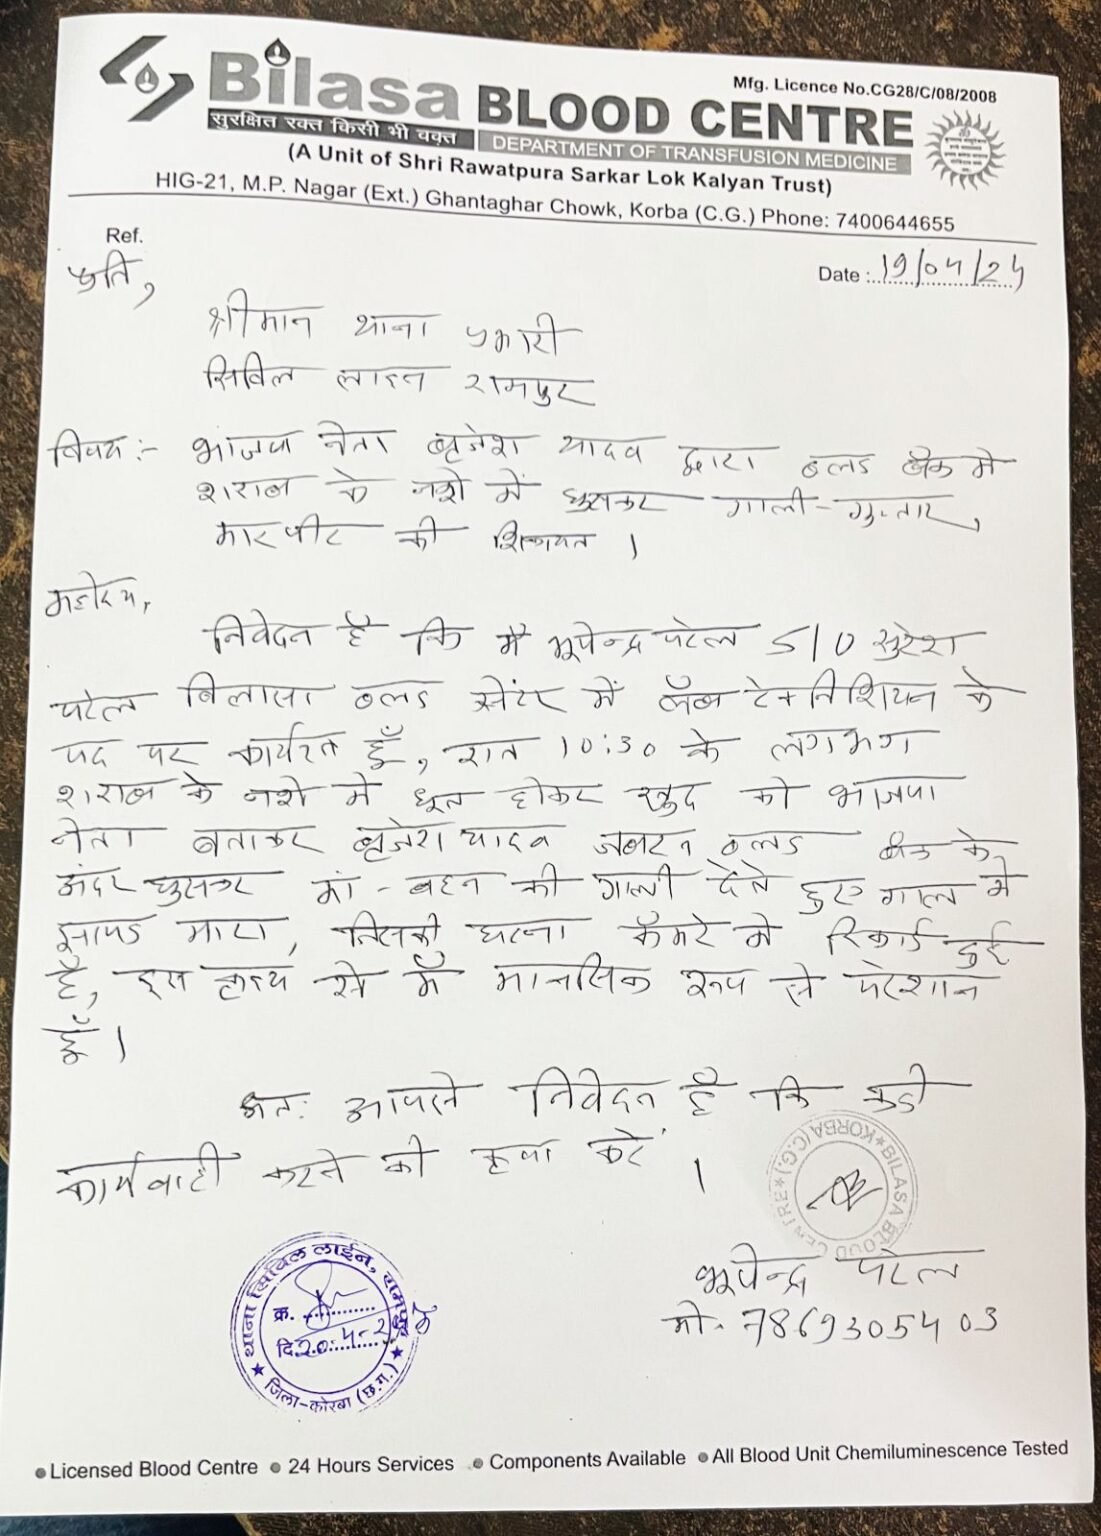 Mfg. Licence No.CG28/C/08/2008
Bilasa BLOOD CENTRE
सुरक्षित रक्त किसी भी वक्त
DEPARTMENT OF TRANSFUSION MEDICINE
(A Unit of Shri Rawatpura Sarkar Lok Kalyan Trust)
HIG-21, M.P. Nagar (Ext.) Ghantaghar Chowk, Korba (C.G.) Phone: 7400644655
Ref.
Date :.. 19/04/24
प्रति,
श्रीमान थाना प्रभारी
सिविल लाइन रामपुर
विषय :- भाजपा नेता बृजेश यादव द्वारा ब्लड बैंक मे
शराब के नशे में घुसकर गाली-गुप्तार,
मारपीट की शिकायत ।
महोदय,
निवेदन है कि मै भूपेन्द्र पटेल S/O सुरेश
पटेल बिलासा ब्लड सेंटर में लॅब टेक्निशियन के
पद पर कार्यरत हूँ, रात 10:30 के लगभग
शराब के नशे मे धूत होकर खुद को भाजपा
नेता बताकर बृजेश यादव जबरन ब्लड बैंक के
अंदर घुसकर मां-बहन की गाली देते हुए गाल मे
झापड मारा, जिसकी घटना कॅमरे मे रिकार्ड हुई
है, इस कृत्य से मैं मानसिक रूप से परेशान
हूँ ।
अतः आपसे निवेदन है कि कडी
कार्यवाही करने की कृपा करें ।
BILASA BLOOD CENTRE ★ KORBA (C.G.) ★
भूपेन्द्र पटेल
मो. 7869305403
थाना सिविल लाईन, रामपुर
क्र. ............
दि. 20.4.2
★ जिला-कोरबा (छ.ग.) ★
Licensed Blood Centre ● 24 Hours Services ● Components Available ● All Blood Unit Chemiluminescence Tested